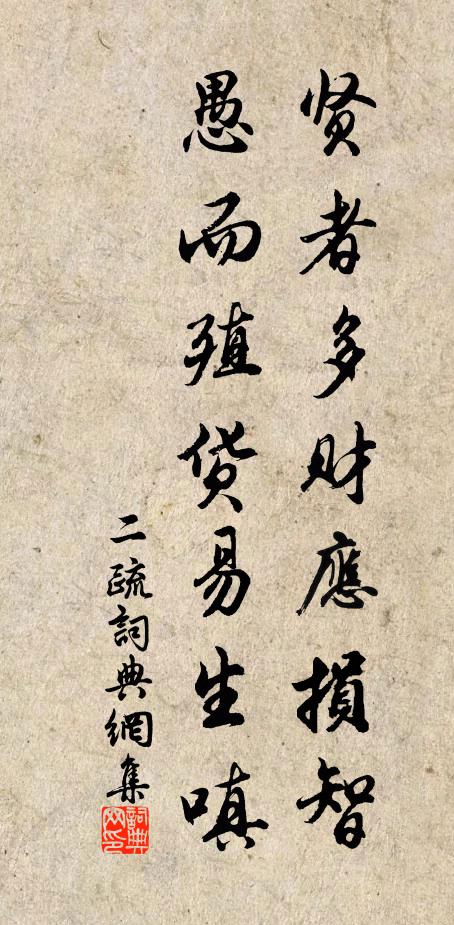 贤者多财應損智
愚而殖货易生嗔
二疏詞典網集
詞典网印